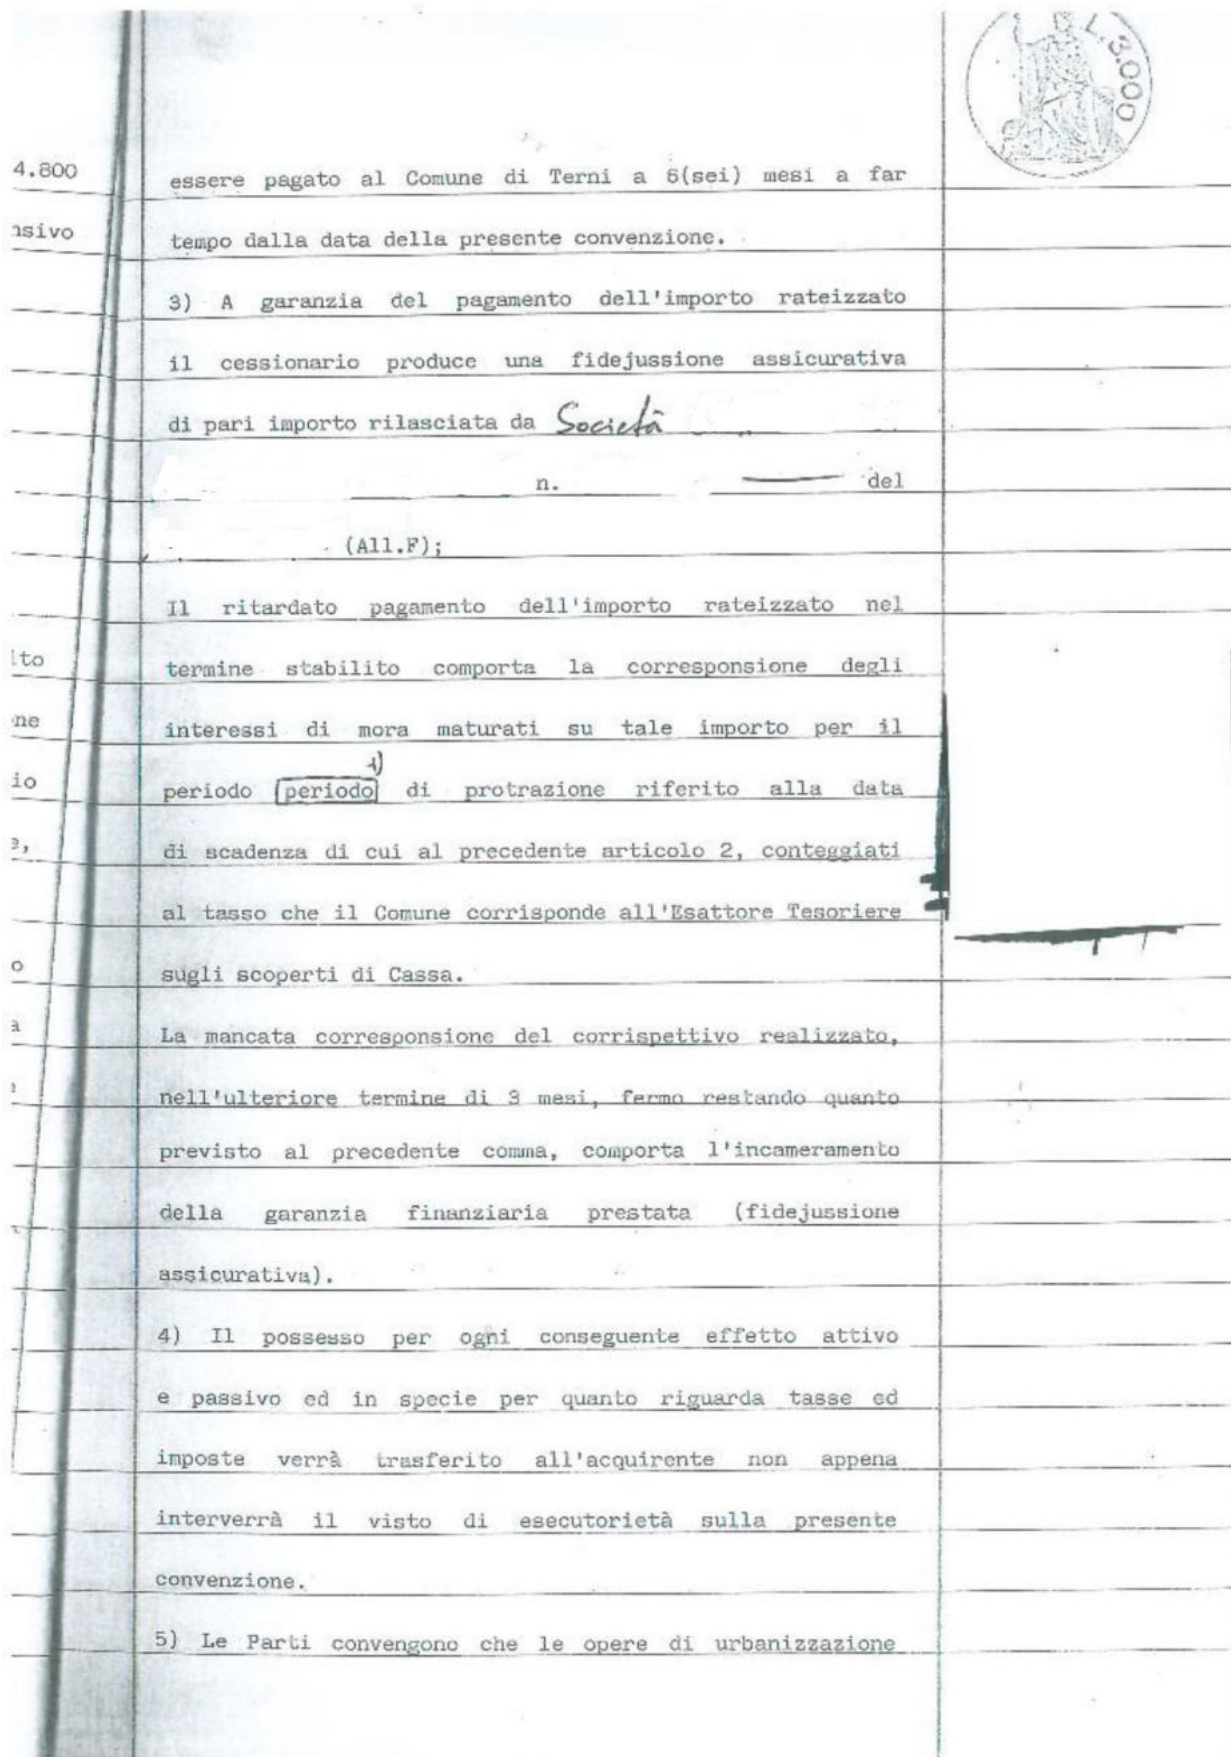 L.3.000
4.800
essere pagato al Comune di Terni a 6(sei) mesi a far
tempo dalla data della presente convenzione.
3) A garanzia del pagamento dell'importo rateizzato
il cessionario produce una fidejussione assicurativa
di pari importo rilasciata da Società
n. del
(All.F);
Il ritardato pagamento dell'importo rateizzato nel
termine stabilito comporta la corresponsione degli
interessi di mora maturati su tale importo per il
1)
periodo periodo di protrazione riferito alla data
di scadenza di cui al precedente articolo 2, conteggiati
al tasso che il Comune corrisponde all'Esattore Tesoriere
sugli scoperti di Cassa.
La mancata corresponsione del corrispettivo realizzato,
nell'ulteriore termine di 3 mesi, fermo restando quanto
previsto al precedente comma, comporta l'incameramento
della garanzia finanziaria prestata (fidejussione
assicurativa).
4) Il possesso per ogni conseguente effetto attivo
e passivo ed in specie per quanto riguarda tasse ed
imposte verrà trasferito all'acquirente non appena
interverrà il visto di esecutorietà sulla presente
convenzione.
5) Le Parti convengono che le opere di urbanizzazione